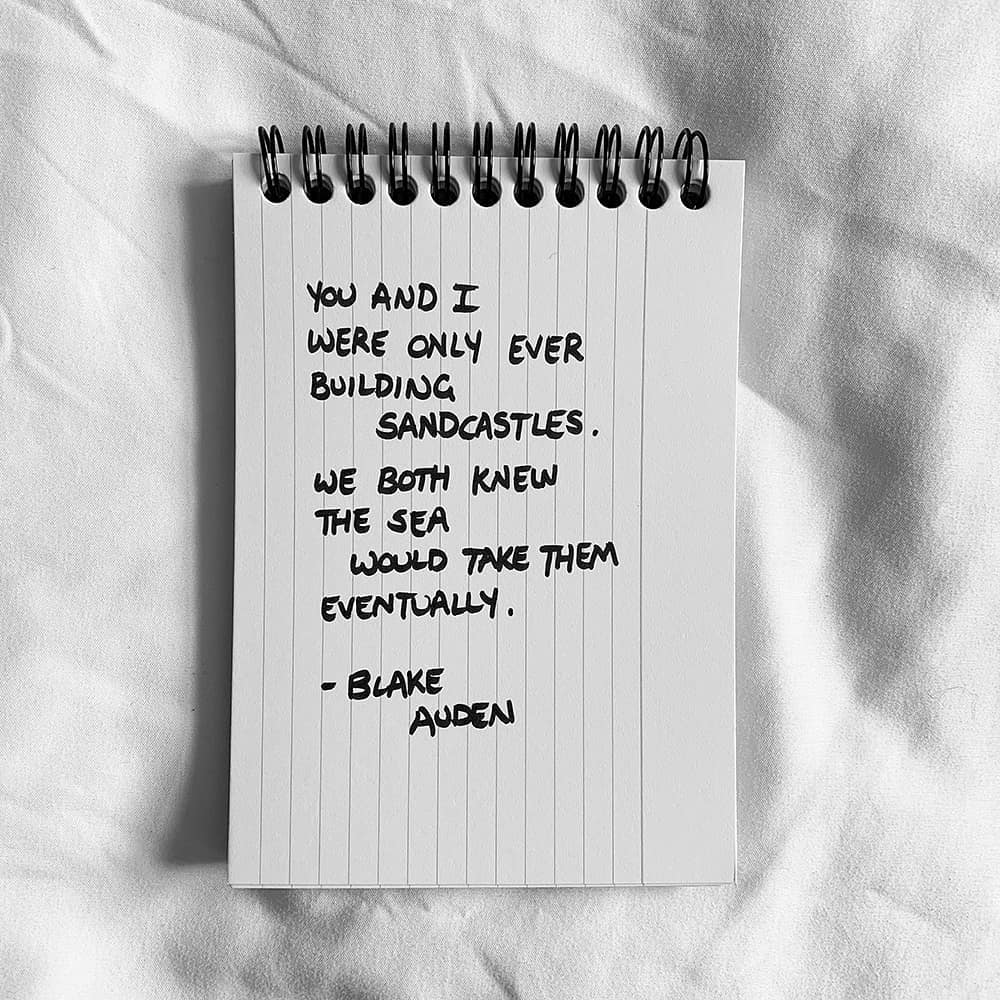 YOU AND I
WERE ONLY EVER
BUILDING
SANDCASTLES.
WE BOTH KNEW
THE SEA
WOULD TAKE THEM
EVENTUALLY.
- BLAKE
AUDEN